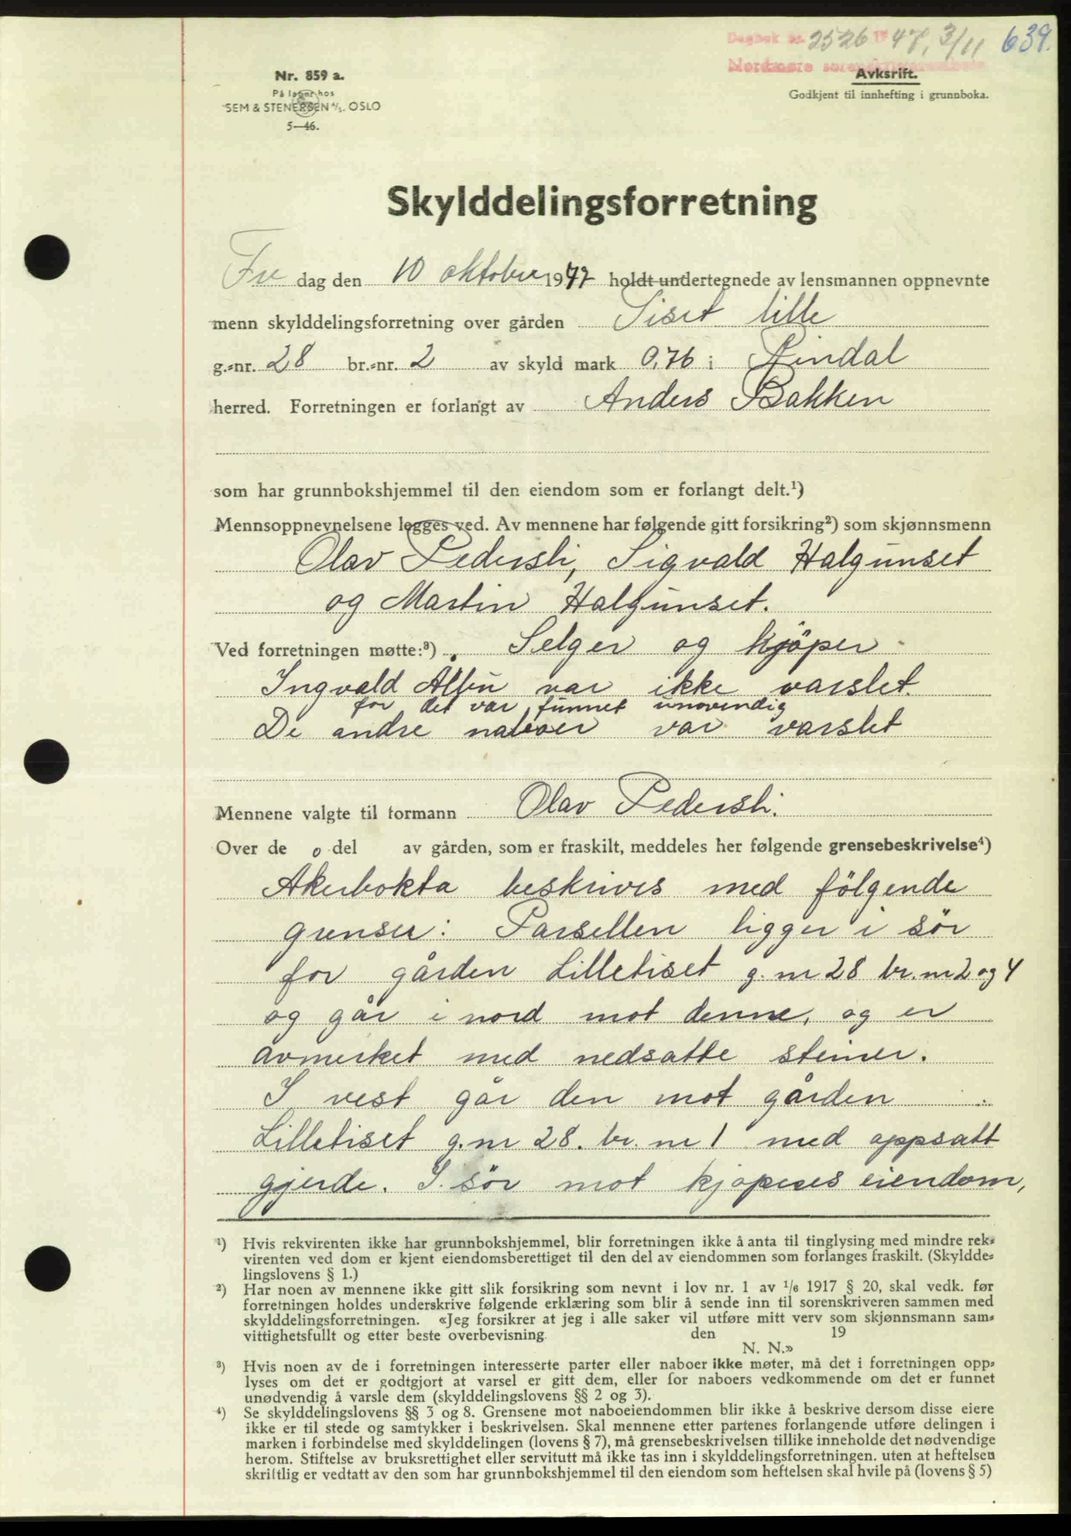 Dagbok nr. 2526 19 47, 3/11 639.
Nordmøre sorenskriverembede
Avksrift.
Godkjent til innhefting i grunnboka.
Nr. 859 a.
På lager hos
SEM & STENERSEN A/S. OSLO
5—46.
Skylddelingsforretning
Fre dag den 10 oktober 1947 holdt undertegnede av lensmannen oppnevnte
menn skylddelingsforretning over gården Tiset lille
g.-nr. 28 br.-nr. 2 av skyld mark 0,76 i Rindal
herred. Forretningen er forlangt av Anders Bakken
som har grunnbokshjemmel til den eiendom som er forlangt delt.¹)
Mennsoppnevnelsene legges ved. Av mennene har følgende gitt forsikring²) som skjønnsmenn
Olav Pedersli, Sigvald Halgunset
og Martin Halgunset.
Ved forretningen møtte:³) Selger og kjöper
Ingvald Ålbu var ikke varslet.
for det var funnet unövendig
De andre naboer var varslet
Mennene valgte til formann Olav Pedersli.
Over de o del av gården, som er fraskilt, meddeles her følgende grensebeskrivelse⁴)
Akerbokta beskrives med fölgende
grenser: Parsellen ligger i sör
for gården Lilletiset g.nr 28 br.nr 2 og 4
og går i nord mot denne, og er
avmerket med nedsatte steiner.
I vest går den mot gården
Lilletiset g.nr 28. br. nr 1 med oppsatt
gjerde. I sör mot kjöperes eiendom,
¹) Hvis rekvirenten ikke har grunnbokshjemmel, blir forretningen ikke å anta til tinglysing med mindre rek-
virenten ved dom er kjent eiendomsberettiget til den del av eiendommen som forlanges fraskilt. (Skyldde-
lingslovens § 1.)
²) Har noen av mennene ikke gitt slik forsikring som nevnt i lov nr. 1 av 1/6 1917 § 20, skal vedk. før
forretningen holdes underskrive følgende erklæring som blir å sende inn til sorenskriveren sammen med
skylddelingsforretningen. «Jeg forsikrer at jeg i alle saker vil utføre mitt verv som skjønnsmann sam-
vittighetsfullt og etter beste overbevisning den 19
N. N.»
³) Hvis noen av de i forretningen interesserte parter eller naboer ikke møter, må det i forretningen opp-
lyses om det er godtgjort at varsel er gitt dem, eller for naboers vedkommende om det er funnet
unødvendig å varsle dem (skylddelingslovens §§ 2 og 3).
⁴) Se skylddelingslovens §§ 3 og 8. Grensene mot naboeiendommen blir ikke å beskrive dersom disse eiere
ikke er til stede og samtykker i beskrivelsen. Skal mennene etter partenes forlangende utføre delingen i
marken i forbindelse med skylddelingen (lovens § 7), må grensebeskrivelsen tillike inneholde det nødvendige
herom. Stiftelse av bruksrettighet eller servitutt må ikke tas inn i skylddelingsforretningen. uten at heftelsen
skriftlig er vedtatt av den som har grunnbokshjemmel til den eiendom som heftelsen skal hvile på (lovens § 5)